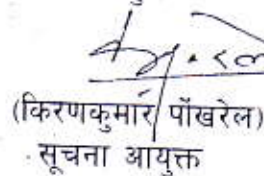 (किरणकुमार पोंखरेल)
सूचना आयुक्त